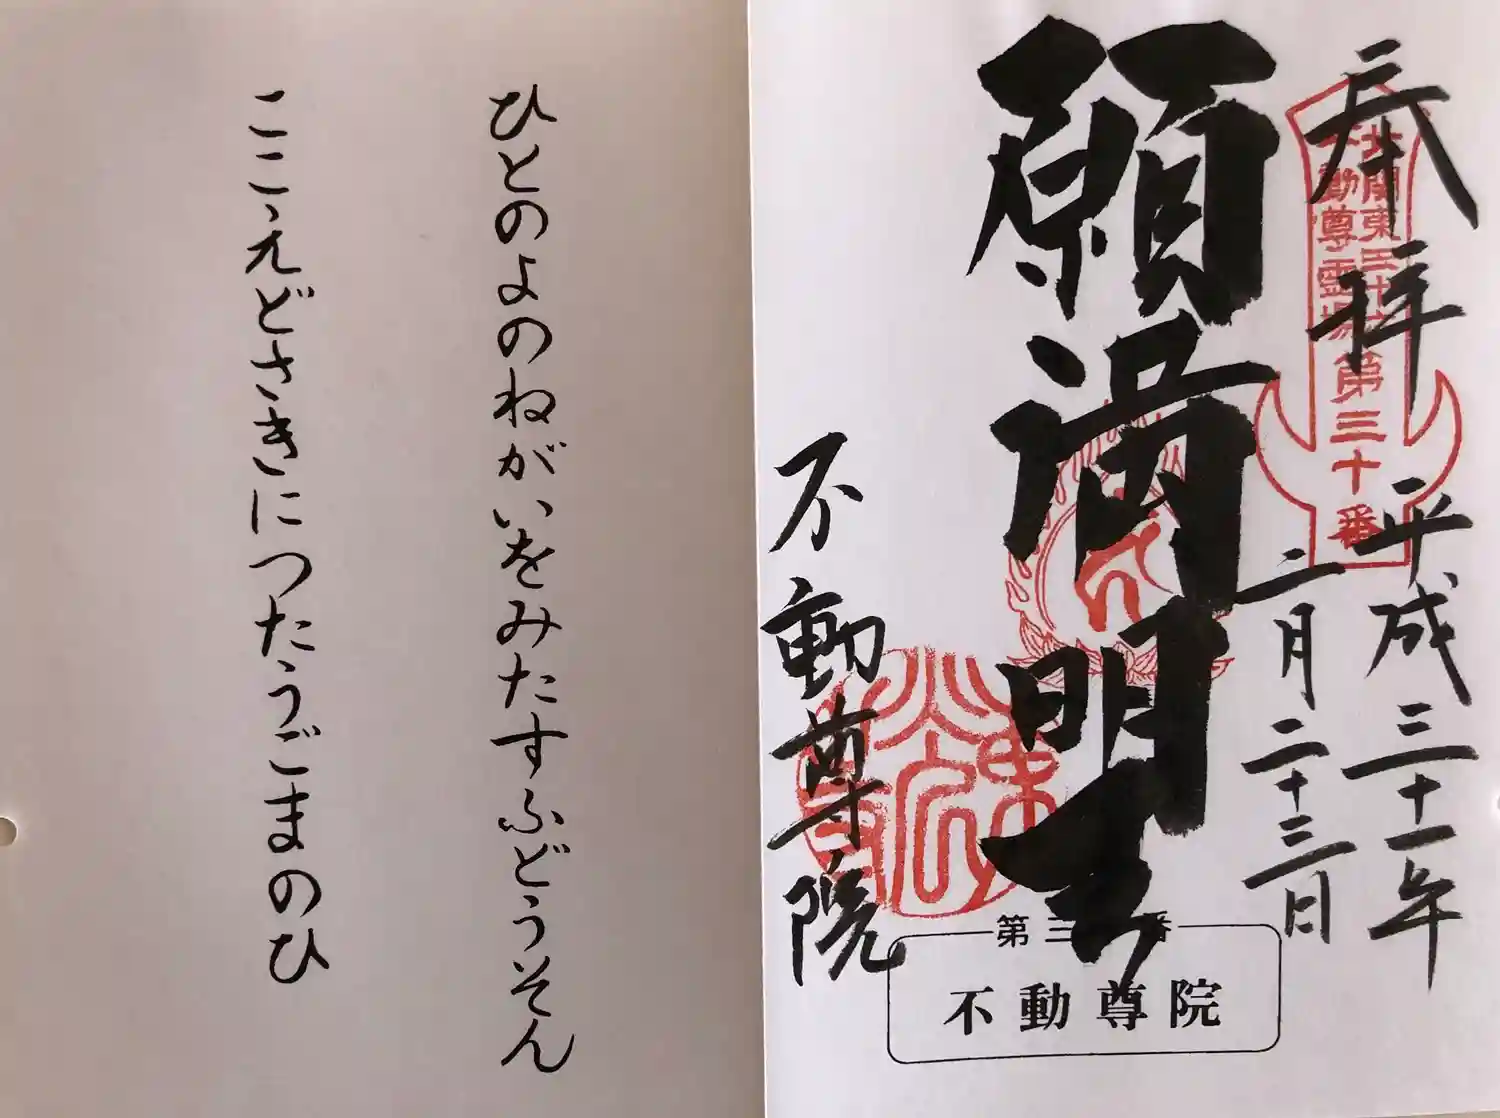 奉拝
平成三十一年
二月二十三日
北関東三十六
不動尊霊場第三十番
願満明王
不動尊院
第三十番
不動尊院
ひとのよのねがいをみたすふどうそん
ここゝえどさきにつたうごまのひ